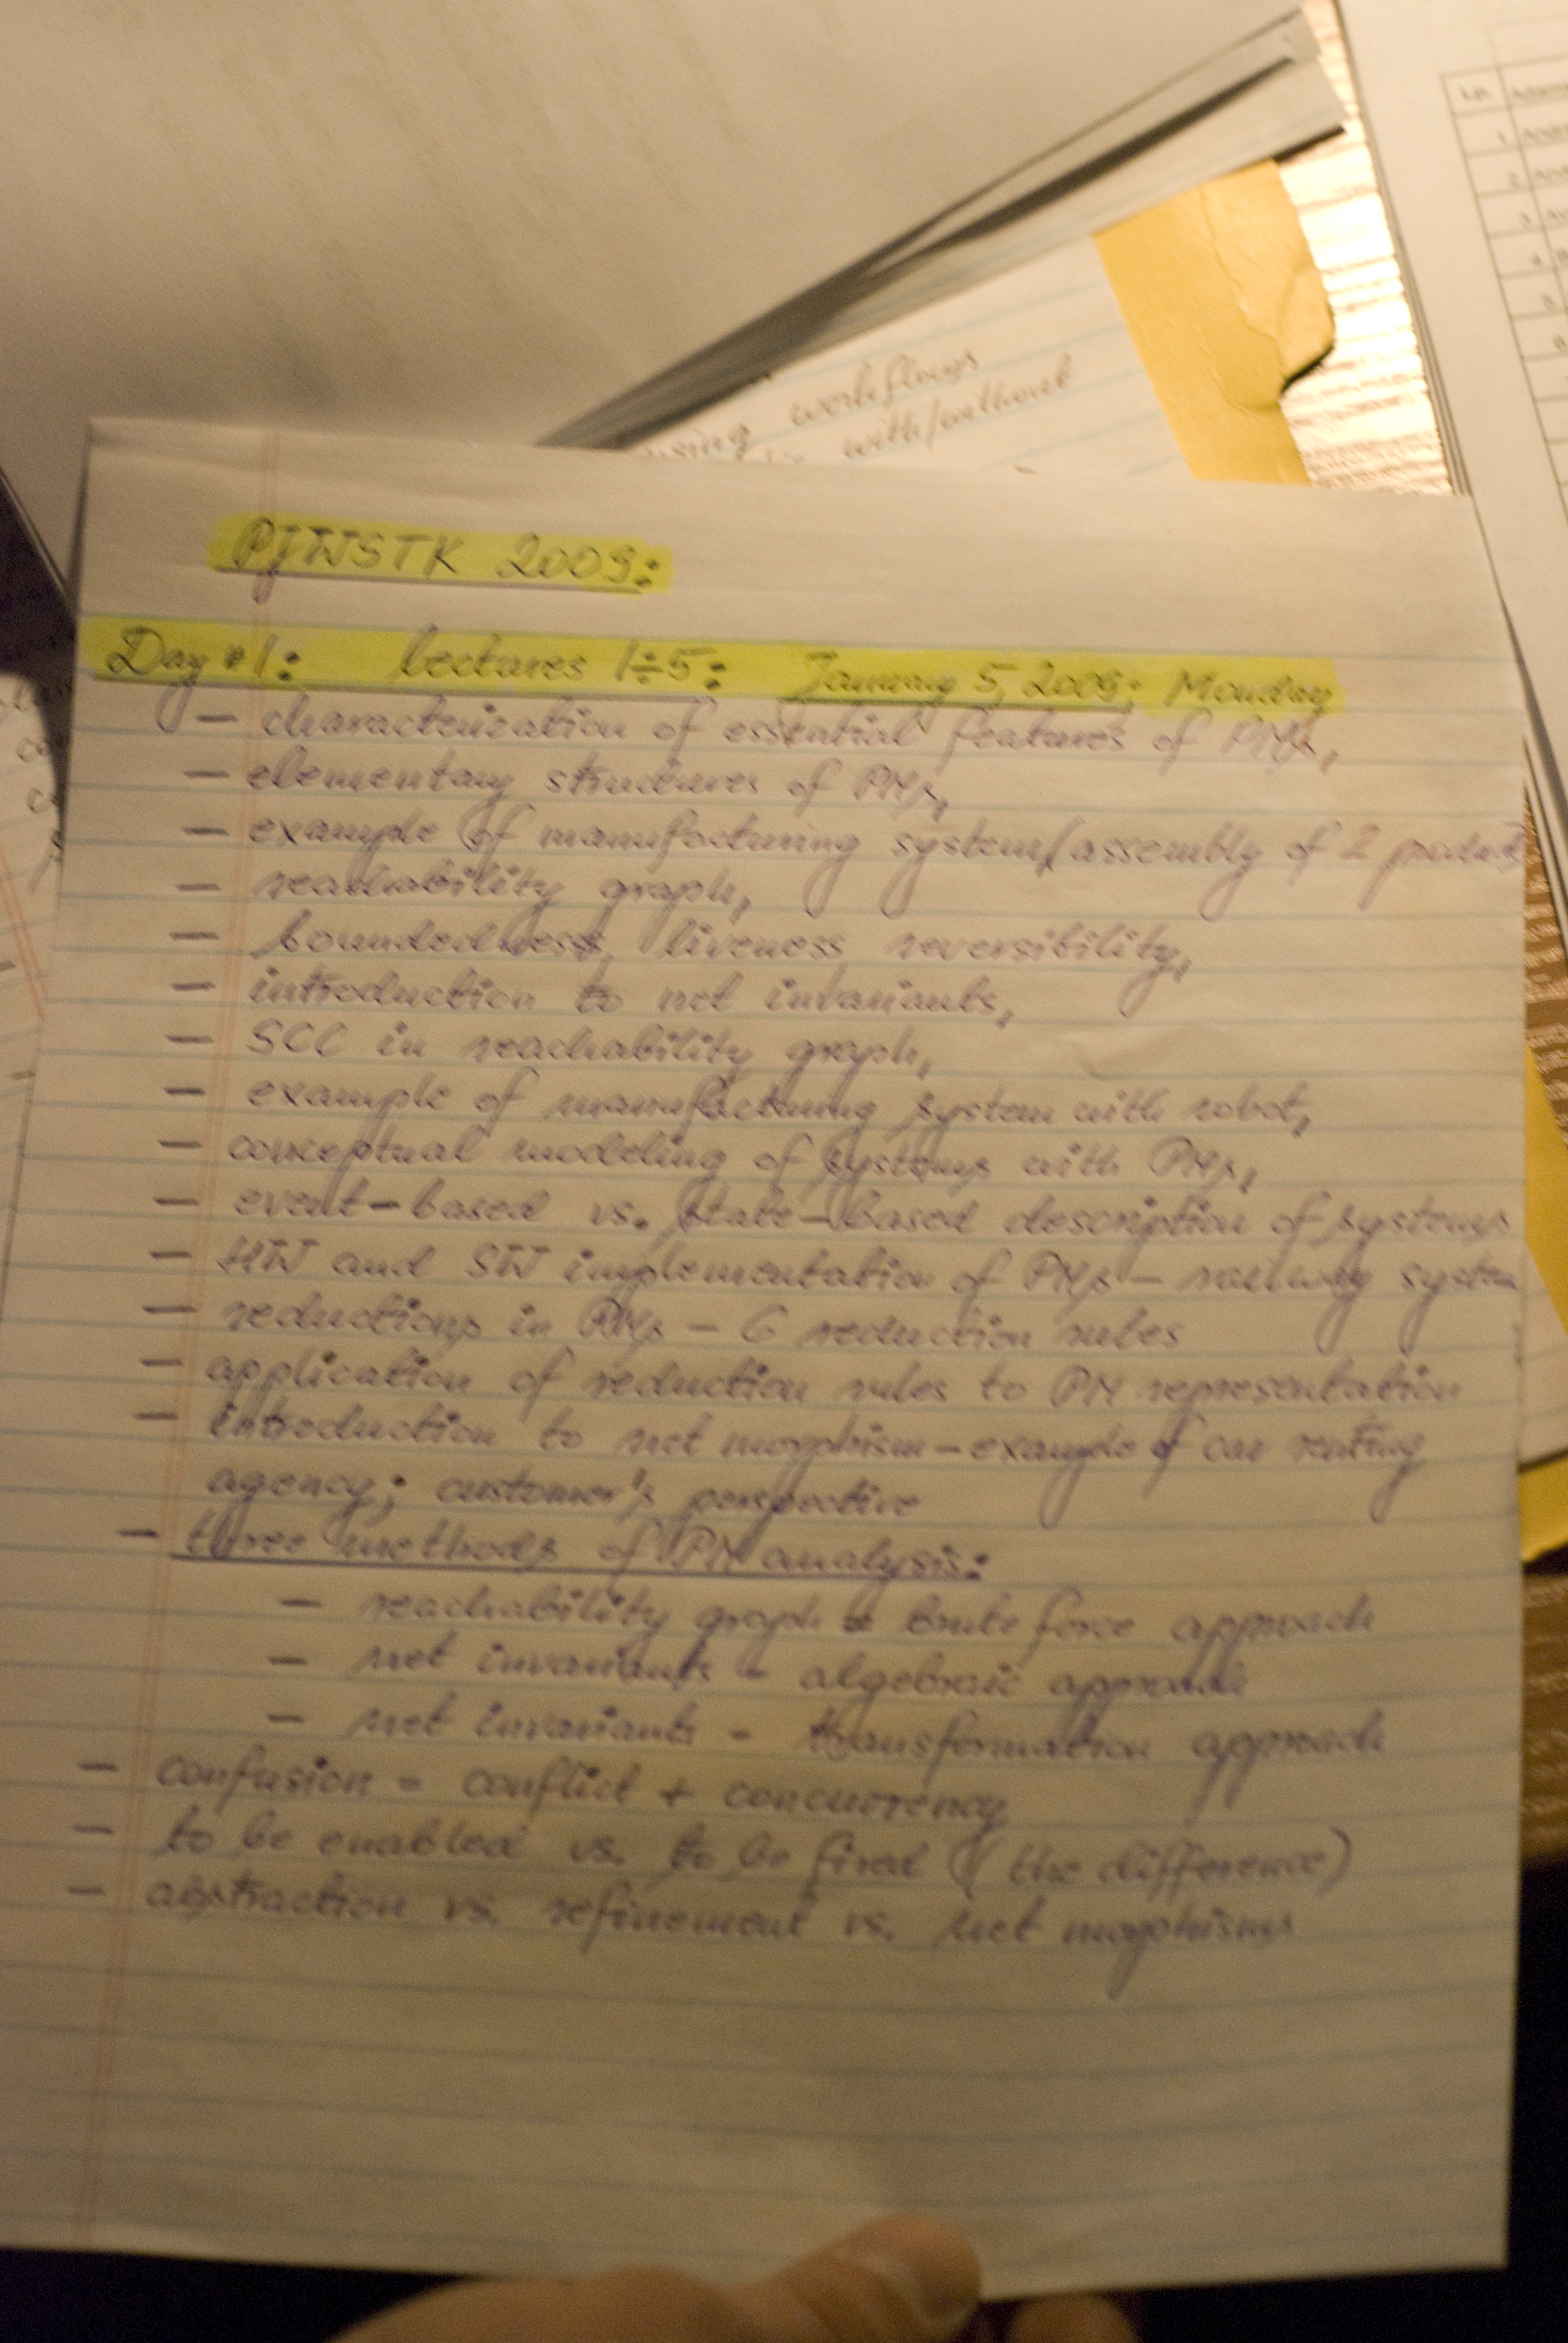 using workflows
with/without
PJWSTK 2009:
Day #1: Lectures 1÷5: January 5, 2009; Monday
— characterization of essential features of PNs,
— elementary structures of PNs,
— example of manufacturing system/assembly of 2 products
— reachability graph,
— boundedness, liveness, reversibility,
— introduction to net invariants,
— SCC in reachability graph,
— example of manufacturing system with robot,
— conceptual modeling of systems with PNs,
— event-based vs. state-based description of systems
— HW and SW implementation of PNs — railway system
— reductions in PNs — 6 reduction rules
— application of reduction rules to PN representation
— introduction to net morphism — example of car renting
agency; customer's perspective
— three methods of PN analysis:
— reachability graph - brute force approach
— net invariants - algebraic approach
— net invariants - transformation approach
— confusion = conflict + concurrency
— to be enabled vs. to be fired (the difference)
— abstraction vs. refinement vs. net morphisms